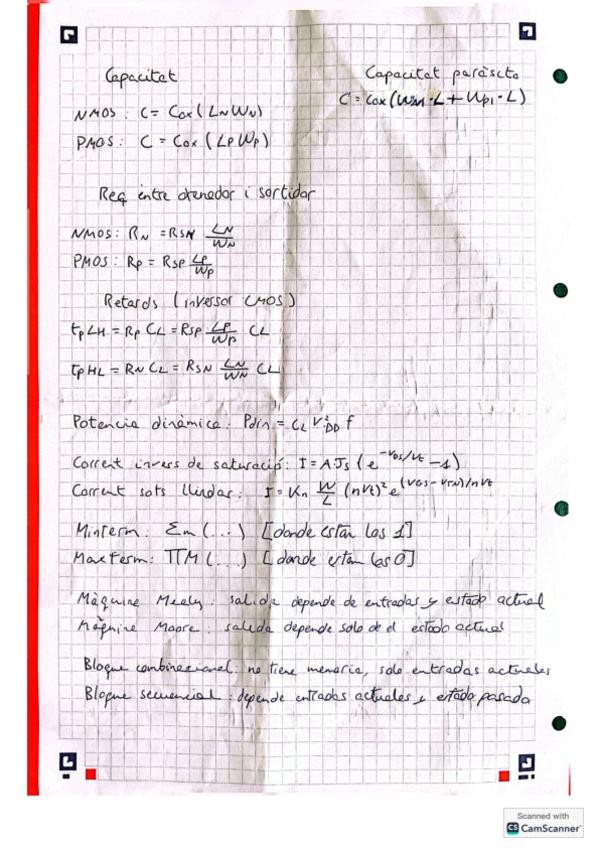 Capacitat
Capacitat paràsita
NMOS: C = Cox (LN WN)
C = Cox (WN1·L + Wp1·L)
PMOS: C = Cox (LP WP)
Req entre drenador i sortidor
NMOS: RN = RSN LN/WN
PMOS: Rp = RSP LP/WP
Retards (inversor CMOS)
tpLH = Rp CL = RSP LP/WP CL
tpHL = RN CL = RSN LN/WN CL
Potencia dinàmica: Pdin = CL V²DD f
Corrent invers de saturació: I = A·Js (e^-VDS/Vt - 1)
Corrent sots llindar: I = Kn W/L (nVt)² e^(VGS-VTN)/nVt
Minterm: Σm (...) [donde están los 1]
Maxterm: ΠM (...) [donde estan los 0]
Màquina Mealy: salida depende de entradas y estado actual
Màquina Moore: salida depende solo de el estado actual
Bloque combinacional: no tiene memoria, solo entradas actuales
Bloque secuencial: depende entradas actuales y estado pasada
Scanned with
CS CamScanner